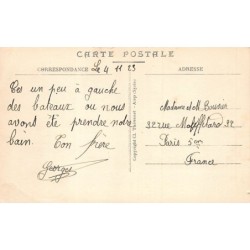 CARTE POSTALE
CORRESPONDANCE
ADRESSE
Le 4 11 23
Ces un peu à gauche
des bateaux ou nous
avont été prendre notre
bain. Ton frère
Georges
Madame et M. Bouvier
32 rue 32
Paris 5em
France